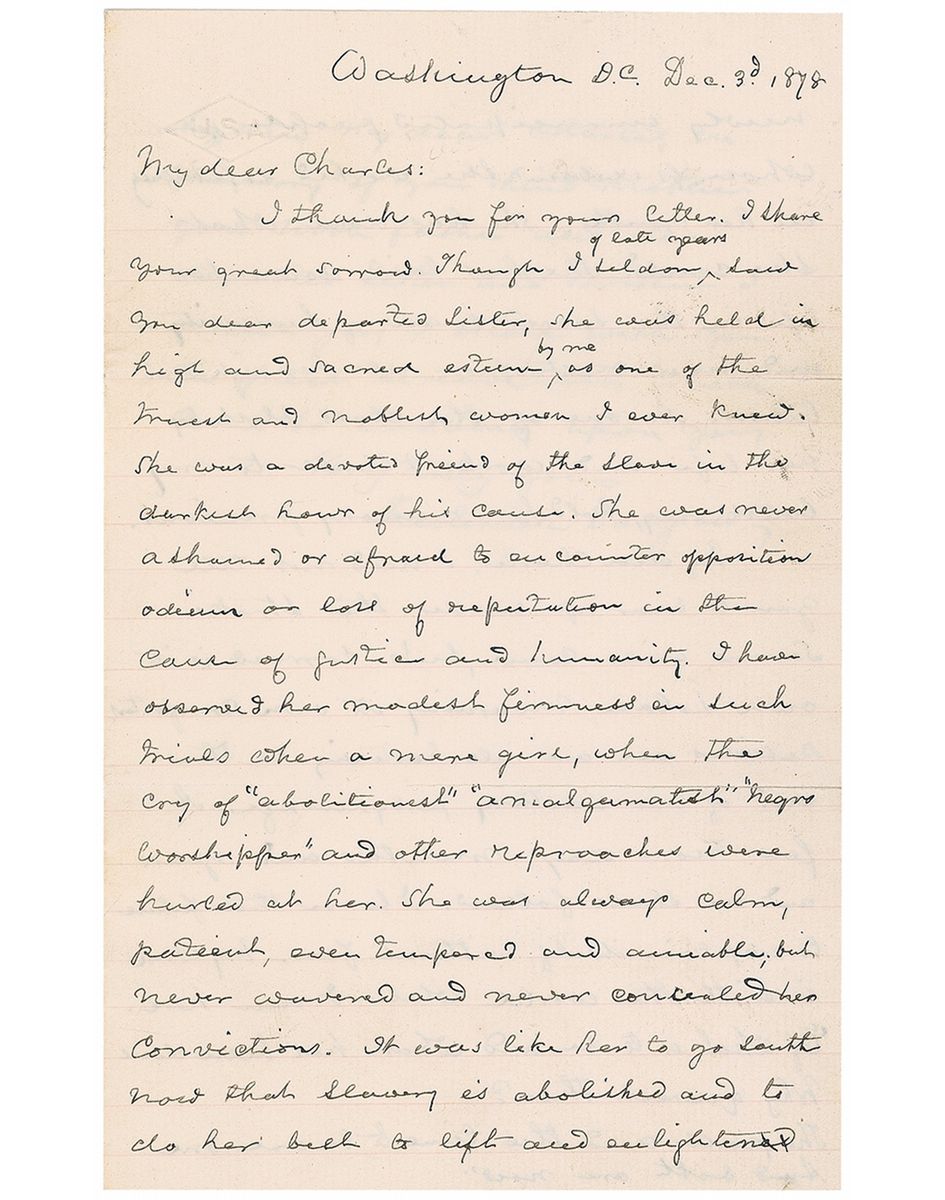 Washington D.C. Dec. 3d. 1878
My dear Charles:
I thank you for your letter. I share
of late years
your great sorrow. Though I seldom ‸ saw
you dear departed Sister, she was held in
by me
high and sacred esteem ‸ as one of the
truest and noblest women I ever knew.
She was a devoted friend of the slave in the
darkest hour of his cause. She was never
ashamed or afraid to encounter opposition
odium or loss of reputation in the
Cause of Justice and humanity. I have
observed her modest firmness in such
trials when a mere girl, when the
cry of "abolitionest" "amalgamatest" "Negro
worshipper" and other reproaches were
hurled at her. She was always calm,
patient, even tempered and amiable; but
never wavered and never concealed her
Convictions. It was like her to go South
now that Slavery is abolished and to
do her best to lift and enlighten